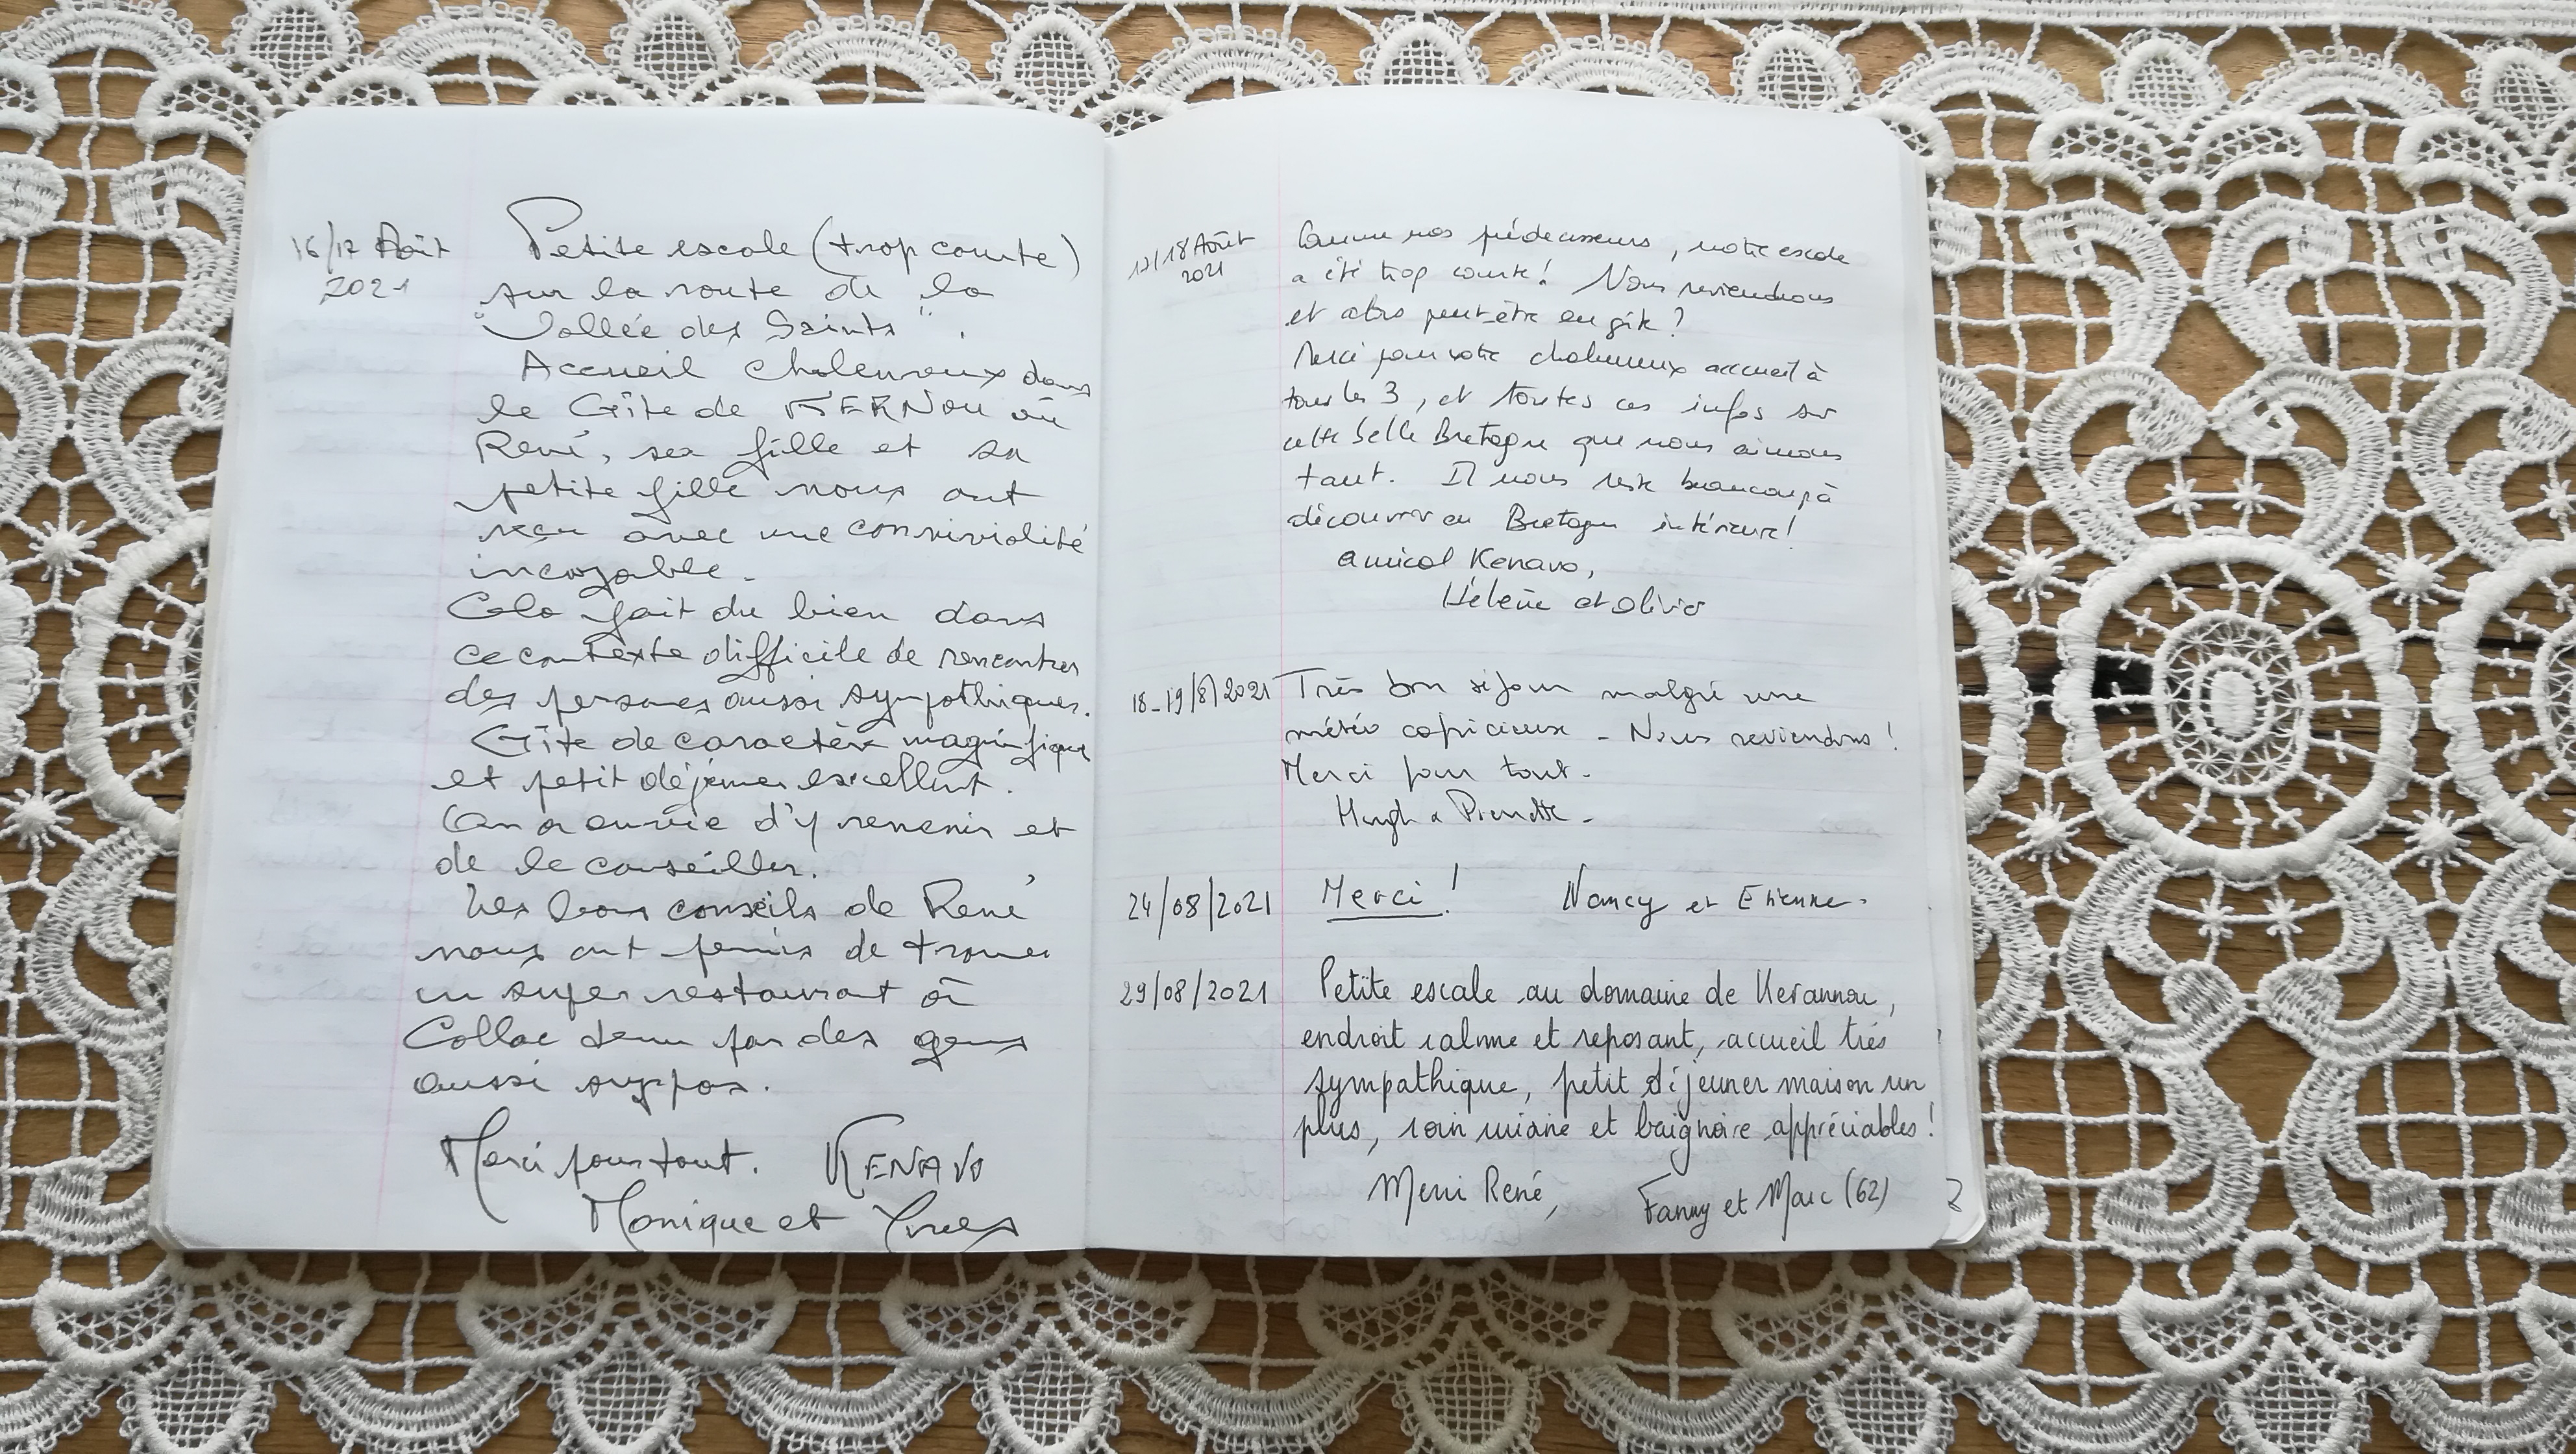 16/17 Août
2021
Petite escale (trop courte)
sur la route de la
"Vallée des Saints".
Accueil chaleureux dans
le Gîte de KERNOU où
René, sa fille et sa
petite fille nous ont
reçu avec une convivialité
incroyable.
Cela fait du bien dans
ce contexte difficile de rencontrer
des personnes aussi sympathiques.
Gîte de caractère magnifique
et petit déjeuner excellent.
On a envie d'y revenir et
de le conseiller.
Les bons conseils de René
nous ont permis de trouver
un super restaurant à
Callac tenu par des gens
aussi sympas.
Merci pour tout. KENAVO
Monique et Yves
17/18 Août
2021
Comme nos prédécesseurs, notre escale
a été trop courte! Nous reviendrons
et alors peut-être en gîte?
Merci pour votre chaleureux accueil à
tous les 3, et toutes ces infos sur
cette belle Bretagne que nous aimons
tant. Il nous reste beaucoup à
découvrir en Bretagne intérieure!
Amical Kenavo,
Hélène et Olivier
18-19/8/2021 Très bon séjour malgré une
météo capricieuse - Nous reviendrons!
Merci pour tout.
Hugh & Pierrette.
24/08/2021 Merci! Nancy et Etienne.
29/08/2021 Petite escale au domaine de Kerannou,
endroit calme et reposant, accueil très
sympathique, petit déjeuner maison un
plus, coin cuisine et baignoire appréciables!
Merci René, Fanny et Marc (62)